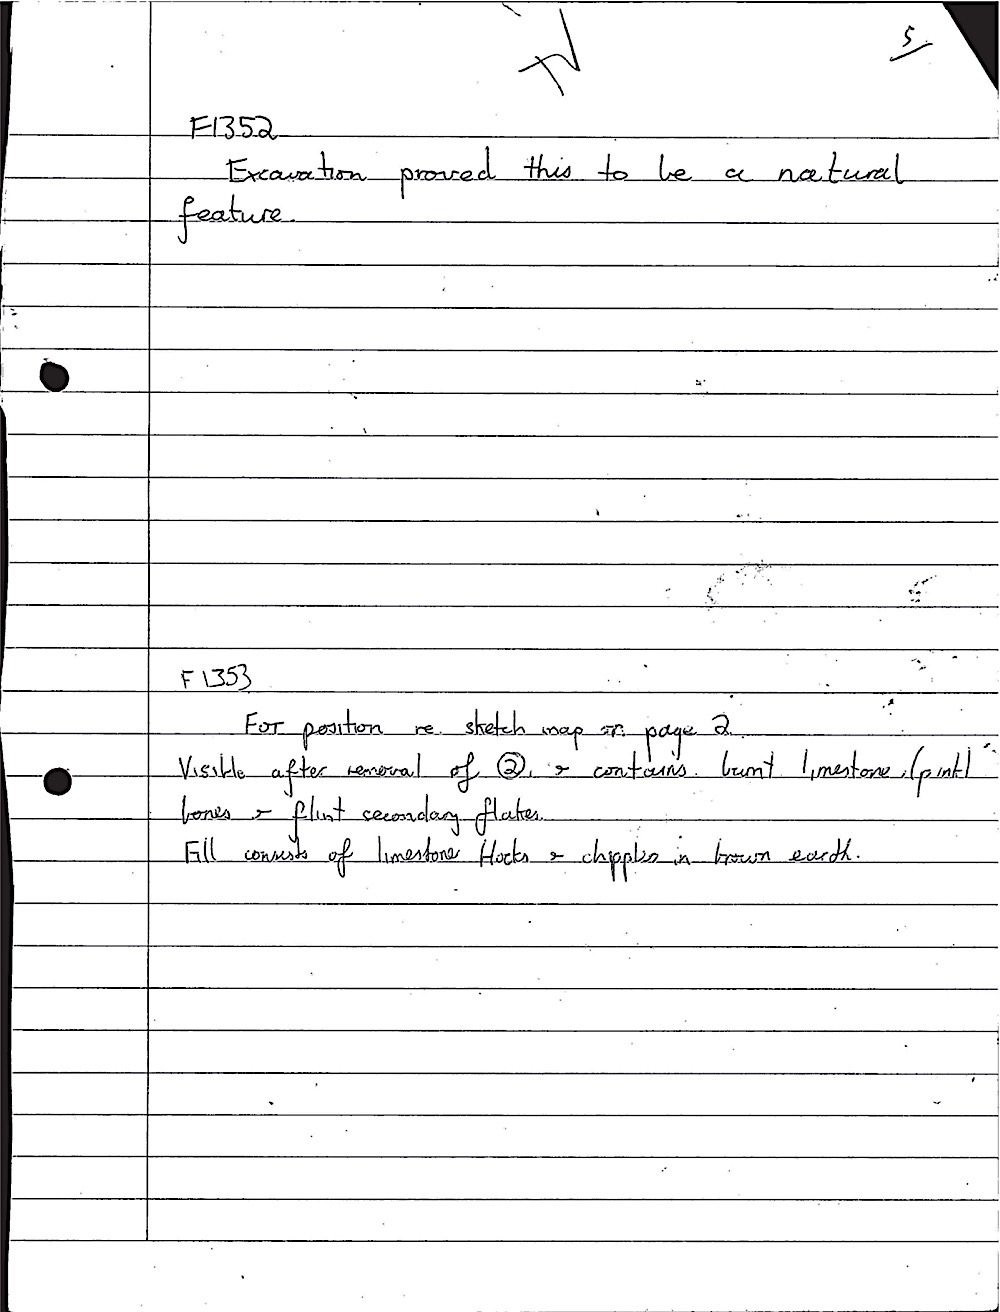 5
F1352
Excavation proved this to be a natural
feature.
F 1353
For position re. sketch map on page 2.
Visible after removal of ②, & contains burnt limestone, (pink)
bones & flint secondary flakes.
Fill consists of limestone blocks & in brown earth.